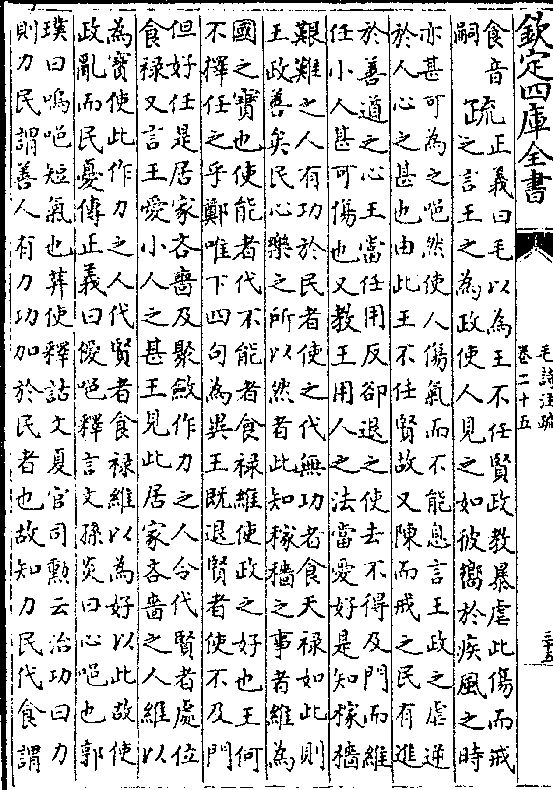 欽定四庫全書
毛詩注疏
卷二十五
食音
嗣
疏
正義曰毛以為王不任賢政教暴虐此傷而戒
之言王之為政使人見之如彼嚮於疾風之時
亦甚可為之唈然使人傷氣而不能息言王政之虐逆
於人心之甚也由此王不任賢故又陳而戒之民有進
於善道之心王當任用反卻退之使去不得及門而維
任小人甚可傷也又教王用人之法當愛好是知稼穡
艱難之人有功於民者使之代無功者食天祿如此則
王政善矣民心樂之所以然者此知稼穡之事者維為
國之寶也使能者代不能者食祿維使政之好也王何
不擇任之乎鄭唯下四句為異王既退賢者使不及門
但好任是居家吝嗇及聚斂作力之人令代賢者處位
食祿又言王愛小人之甚王見此居家吝嗇之人維以
為寶使此作力之人代賢者食祿維以為好以此故使
政亂而民憂傳正義曰僾唈釋言文孫炎曰心唈也郭
璞曰嗚唈短氣也荓使釋詁文夏官司勳云治功曰力
則力民謂善人有力功加於民者也故知力民代食謂